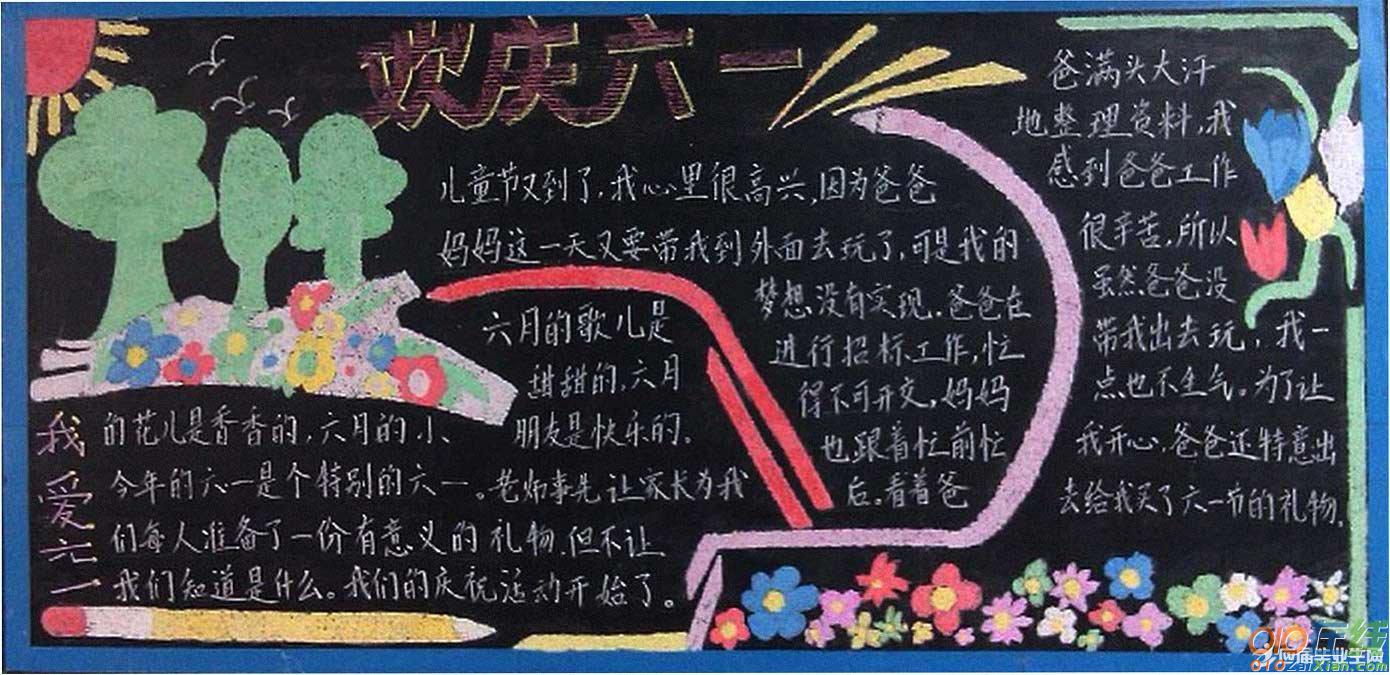 欢庆六一
我爱六一
六月的歌儿是
甜甜的,六月
的花儿是香香的,六月的小
朋友是快乐的。
今年的六一是个特别的六一。老师事先让家长为我
们每人准备了一份有意义的礼物,但不让
我们知道是什么。我们的庆祝活动开始了。
儿童节又到了,我心里很高兴,因为爸爸
妈妈这一天又要带我到外面去玩了,可是我的
梦想没有实现.爸爸在
进行招标工作,忙
得不可开交,妈妈
也跟着忙前忙
后。看着爸
爸满头大汗
地整理资料,我
感到爸爸工作
很辛苦,所以
虽然爸爸没
带我出去玩,我一
点也不生气。为了让
我开心,爸爸还特意出
去给我买了六一节的礼物。
应届毕业生网